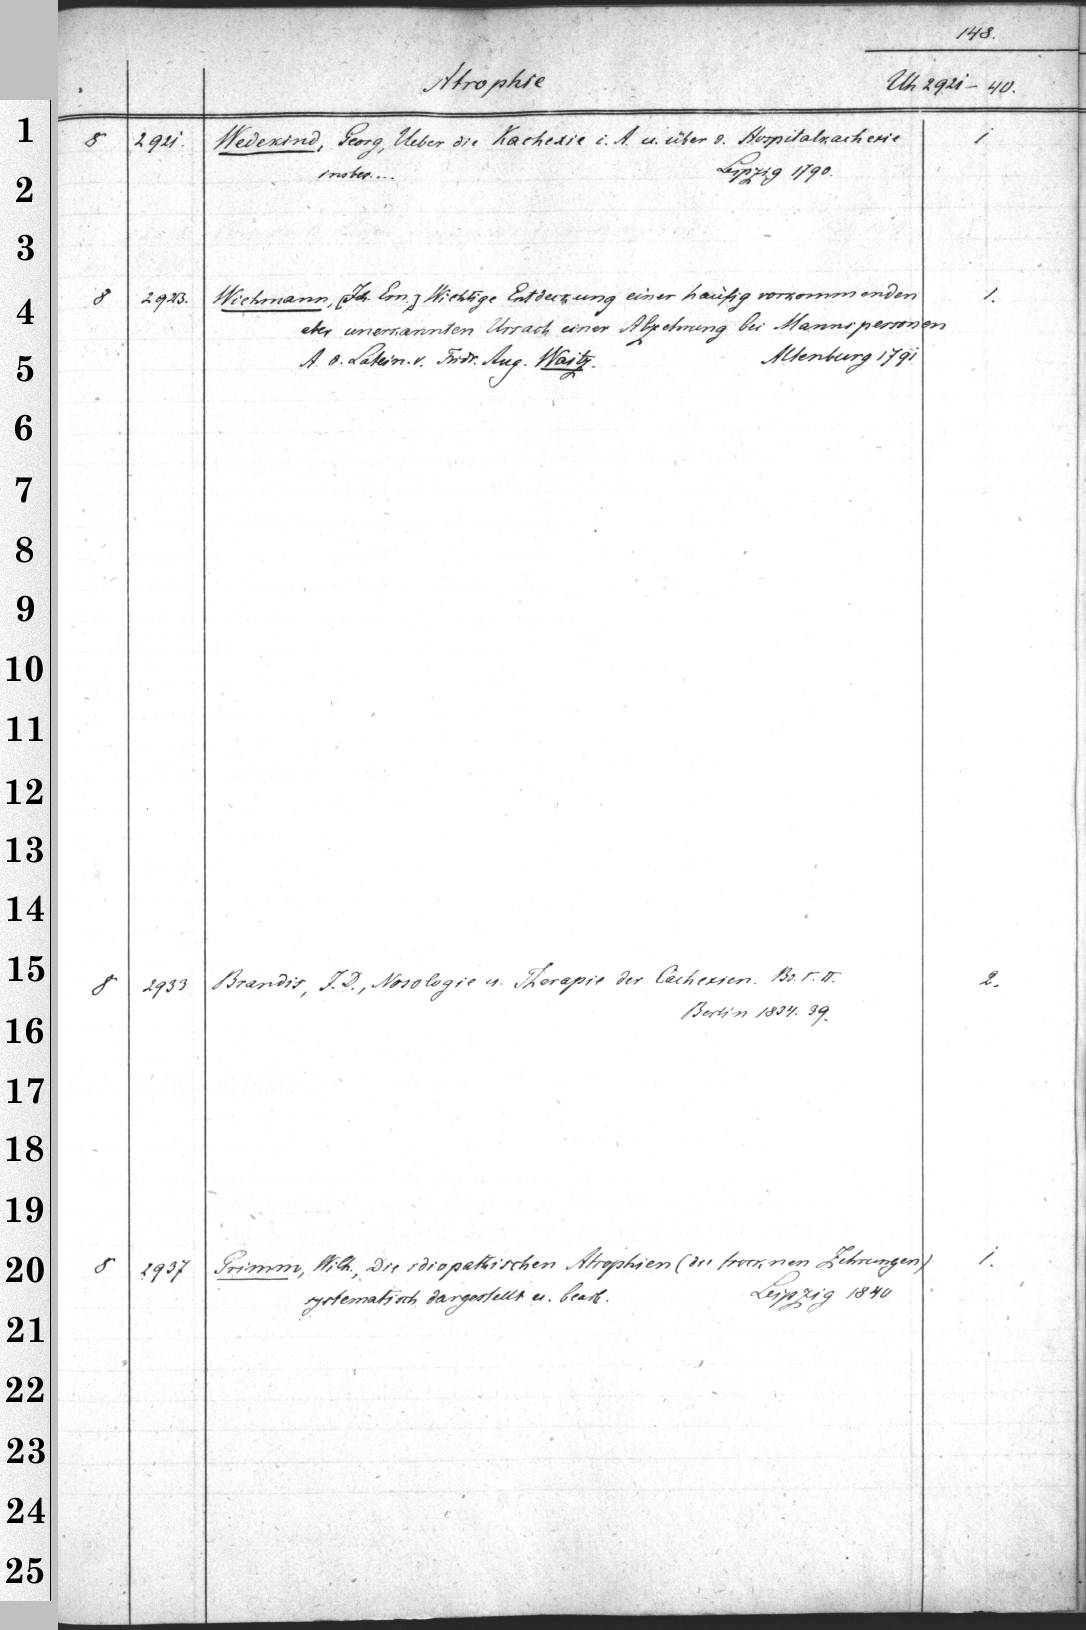 148.
Atrophie Uh 2921 - 40.
1 8 2921. Wedekind, Georg, Ueber die Kachexie i. A. u. über d. Hospitalkachexie 1
2 insbes.... Leipzig 1790.
3
8 2923. Wichmann, (Joh. Ern.) Wichtige Entdeckung einer häufig vorkommenden 1.
4 aber unerkannten Ursach einer Abzehrung bei Mannspersonen
5 A. d. Latein. v. Fridr. Aug. Waitz. Altenburg 1791
6
7
8
9
10
11
12
13
14
15 8 2933 Brandis, J. D., Nosologie u. Therapie der Cachexien. Bd. I. II. 2.
16 Berlin 1834. 39.
17
18
19
20 8 2937 Grimm, Wilh., Die idiopathischen Atrophien (die trocknen Zehrungen) 1.
systematisch dargestellt u. bearb. Leipzig 1840
21
22
23
24
25